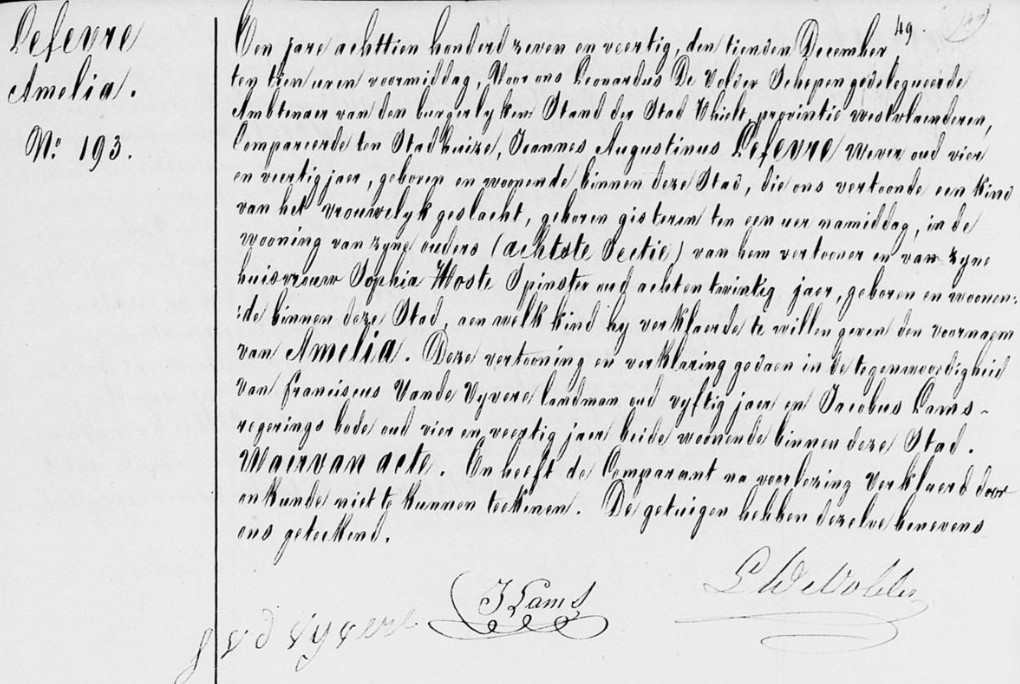 Lefevre
Amelia.
No 193.
49.
Den jare achttien honderd zeven en veertig, den tienden December
ten tien uren voormiddag, Voor ons Leonardus De Volder Schepen gedelegueerde
Ambtenaer van den burgerlyken Stand der Stad Thielt, provintie westvlaenderen,
Compareerde ten Stadhuize, Joannes Augustinus Lefevre wever oud vier
en veertig jaer, geboren en woonende binnen deze Stad, die ons vertoonde een kind
van het vrouwelyk geslacht, geboren gisteren ten een uer namiddag, in de
wooning van zyne ouders (achtste Sectie) van hem vertooner en van zyne
huisvrouw Sophia Hoste Spinster oud acht en twintig jaer, geboren en woonen:
:de binnen deze Stad, aen welk kind hy verklaerde te willen geven den voornaem
van Amelia. Deze vertooning en verklaring gedaen in de tegenwoordigheid
van Franciscus Vande Vyvere landman oud vyftig jaer en Jacobus Lams-
regerings bode oud vier en veertig jaer beide woonende binnen deze Stad.
Waervan acte. En heeft de Comparant na voorlezing Verklaerd door
onkunde niet te kunnen teekenen. De getuigen hebben dezelve benevens
ons geteekend.
J Lams
L De Volder
f v d vyvere